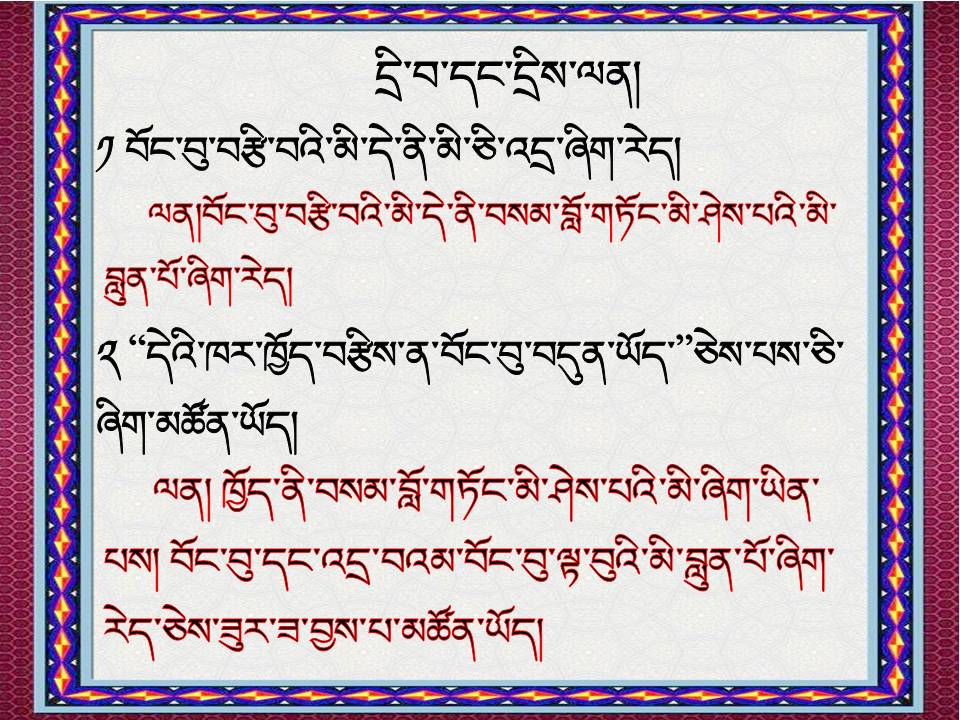 དྲི་བ་དང་དྲིས་ལན།
༡ བོང་བུ་བརྩི་བའི་མི་དེ་ནི་མི་ཅི་འདྲ་ཞིག་རེད།
ལན།བོང་བུ་བརྩི་བའི་མི་དེ་ནི་བསམ་བློ་གཏོང་མི་ཤེས་པའི་མི་
བླུན་པོ་ཞིག་རེད།
༢ “དེའི་ཁར་ཁྱོད་བརྩིས་ན་བོང་བུ་བདུན་ཡོད་”ཅེས་པས་ཅི་
ཞིག་མཚོན་ཡོད།
ལན། ཁྱོད་ནི་བསམ་བློ་གཏོང་མི་ཤེས་པའི་མི་ཞིག་ཡིན་
པས། བོང་བུ་དང་འདྲ་བའམ་བོང་བུ་ལྟ་བུའི་མི་བླུན་པོ་ཞིག་
རེད་ཅེས་ཟུར་ཟ་བྱས་པ་མཚོན་ཡོད།